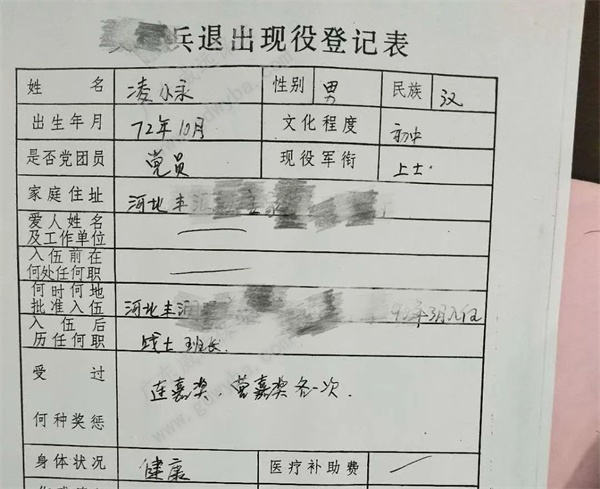 兵退出现役登记表
姓名 凌小永 性别 男 民族 汉
出生年月 72年10月 文化程度 初中
是否党团员 党员 现役军衔 上士
家庭住址 河北丰
爱人姓名及工作单位
入伍前在何处任何职
何时何地批准入伍 河北丰 年3月入伍
入伍后历任何职 战士 班长.
受过何种奖惩 连嘉奖，营嘉奖各一次.
身体状况 健康 医疗补助费